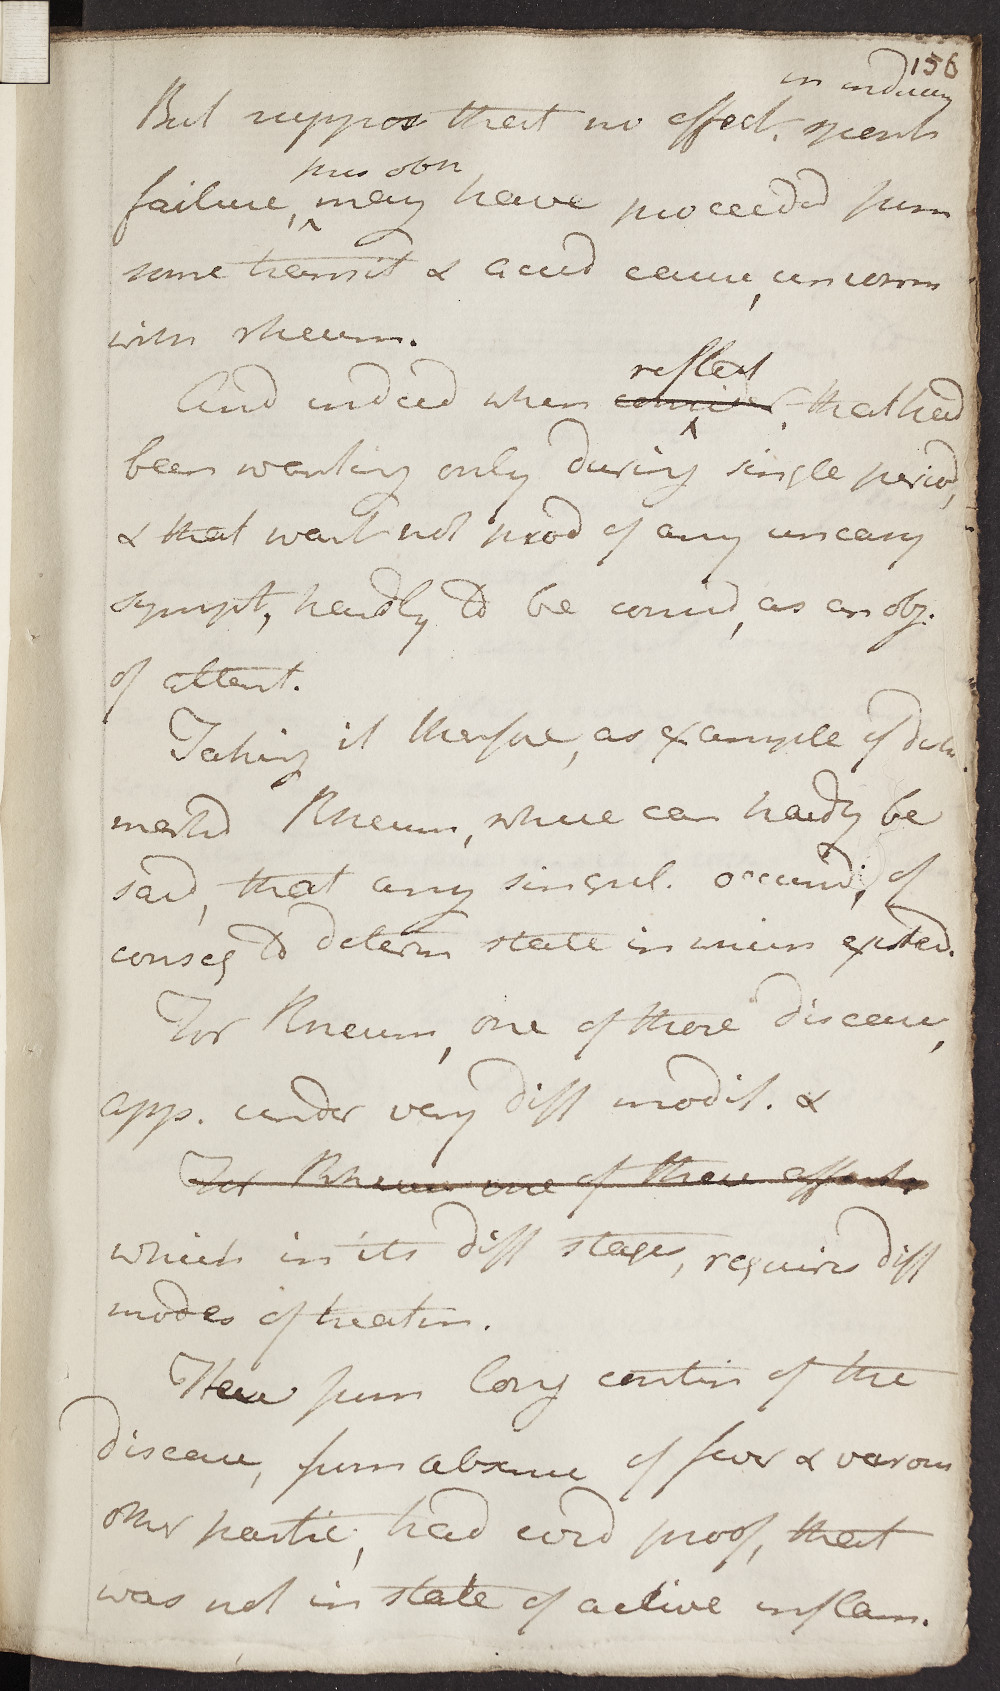 156
in inducing
But suppos that no effect, spent
pres obn
failure, may have proceeded from
some transit & accid cause, unconn
with rheum.
reflect
And indeed when consider, that had
been wanting only during single period,
& that want not prod of any uneasy
sympt, hardly to be consid, as an obj.
of attent.
Taking it therfore, as example of
marked Rheum, where can hardly be
said, that any singul. occurrd, of
conseq to determ state in which existed.
For Rheum, one of those diseases,
app. under very diff modif. &
For Rheum one of those affects
which in its diff stages, requires diff
modes of treatm.
Here from long contin of the
disease, from absence of fever & various
other partic, had evid proof, that
was not in state of active inflam.